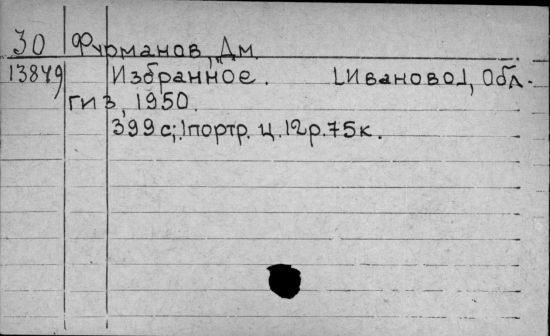 30 Фурманов, Дм.
13849 Избранное. [Иваново], Обл.
гиз, 1950.
399 с; 1 портр. ц. 12 р. 75 к.